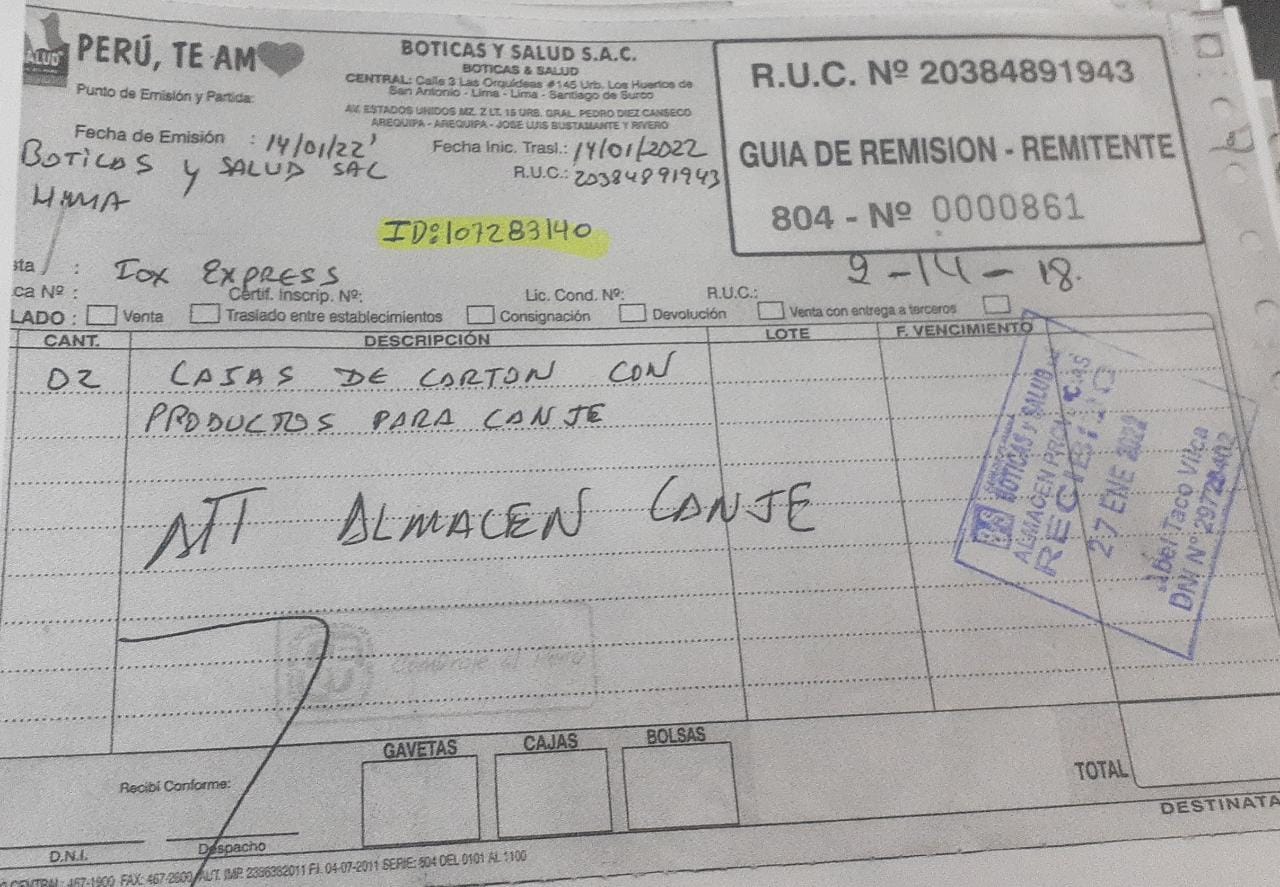 SALUD
PERÚ, TE AM
BOTICAS Y SALUD S.A.C.
BOTICAS & SALUD
CENTRAL: Calle 3 Las Orquideas #145 Urb. Los Huertos de
San Antonio - Lima - Lima - Santiago de Surco
AV. ESTADOS UNIDOS MZ. Z LT. 15 URB. GRAL. PEDRO DIEZ CANSECO
AREQUIPA - AREQUIPA - JOSE LUIS BUSTAMANTE Y RIVERO
Punto de Emisión y Partida:
Fecha de Emisión : 14/01/22
Fecha Inic. Trasl.: 14/01/2022
BOTICAS Y SALUD SAC
R.U.C.: 20384891943
R.U.C. Nº 20384891943
GUIA DE REMISION - REMITENTE
804 - Nº 0000861
ID:107283140
9-14-18.
sta : IOX EXPRESS
ca Nº :
Certif. Inscrip. Nº:
Lic. Cond. Nº:
R.U.C.:
LADO : Venta Traslado entre establecimientos Consignación Devolución Venta con entrega a terceros
CANT. DESCRIPCIÓN LOTE F. VENCIMIENTO
02 CAJAS DE CARTON CON
PRODUCTOS PARA CANJE
ATT ALMACEN CANJE
BOTICAS y SALUD
ALMACEN
RECIBIDO
27 ENE 2022
Abel Taco Vilca
DNI Nº 29728402
Cómprale al Perú
GAVETAS CAJAS BOLSAS
Recibí Conforme:
TOTAL
DESTINATA
D.N.I.
Despacho
CENTRAL: 467-1900 FAX: 467-2600 AUT. IMP. 2386382011 F.I. 04-07-2011 SERIE: 804 DEL 0101 AL 1100